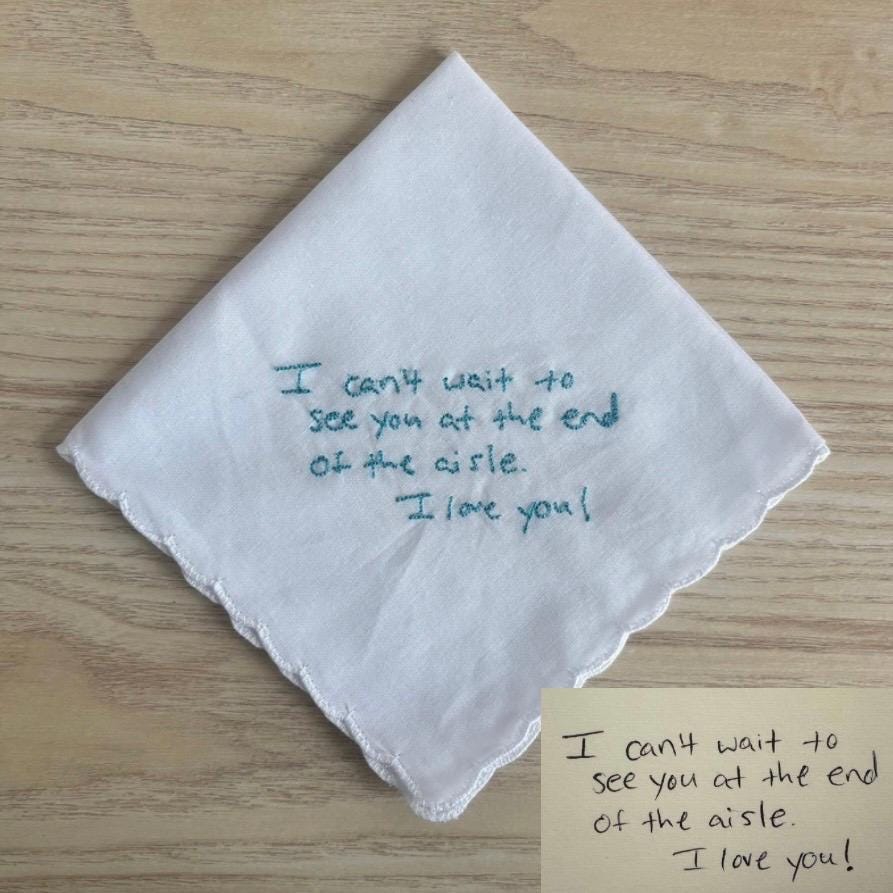 I can't wait to
see you at the end
of the aisle.
I love you!
I can't wait to
see you at the end
of the aisle.
I love you!